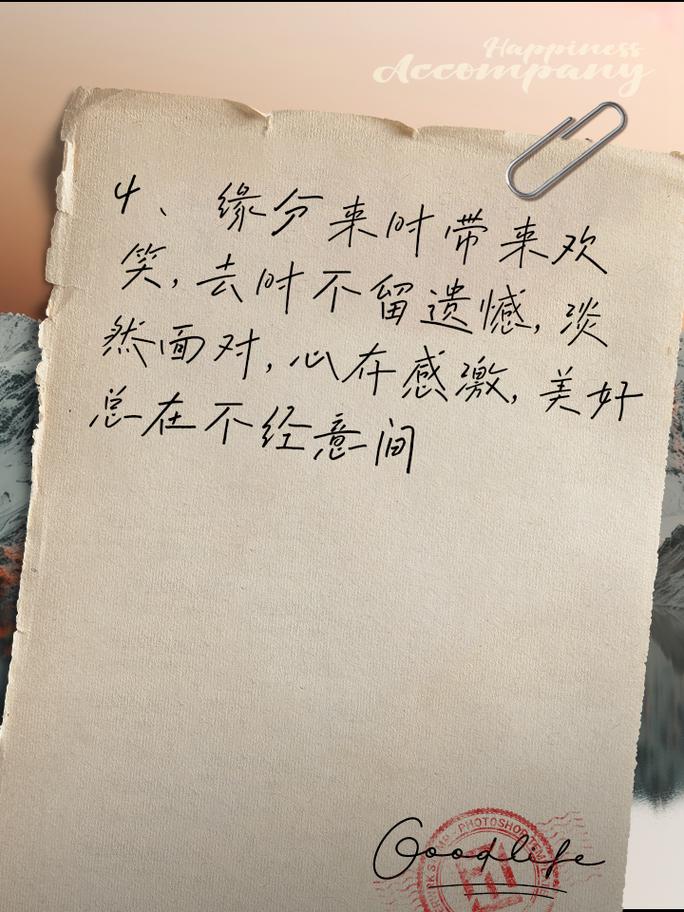 Happiness
Accompany
4、缘分来时带来欢
笑,去时不留遗憾,淡
然面对,心存感激,美好
总在不经意间
PHOTOSHOP
Goodlife